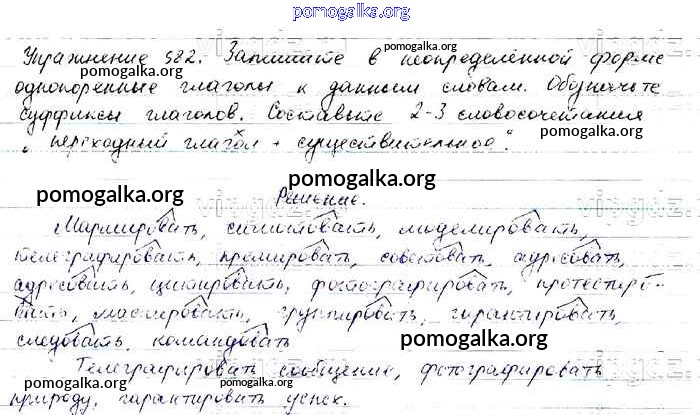 pomogalka.org
Упражнение 582. Запишите в неопределённой форме
однокоренные глаголы к данным словам. Обозначьте
суффиксы глаголов. Составьте 2-3 словосочетания
„переходный глагол + существительное".
Решение.
Маршировать, сигналовать, моделировать,
телеграфировать, премировать, советовать, адресовать,
адресовать, цитировать, фотографировать, протестиро-
вать, массировать, группировать, гарантировать,
следовать, командовать
Телеграфировать сообщение, фотографировать
природу, гарантировать успех.
pomogalka.org
pomogalka.org
pomogalka.org
pomogalka.org
pomogalka.org
pomogalka.org
pomogalka.org
pomogalka.org
pomogalka.org
pomogalka.org